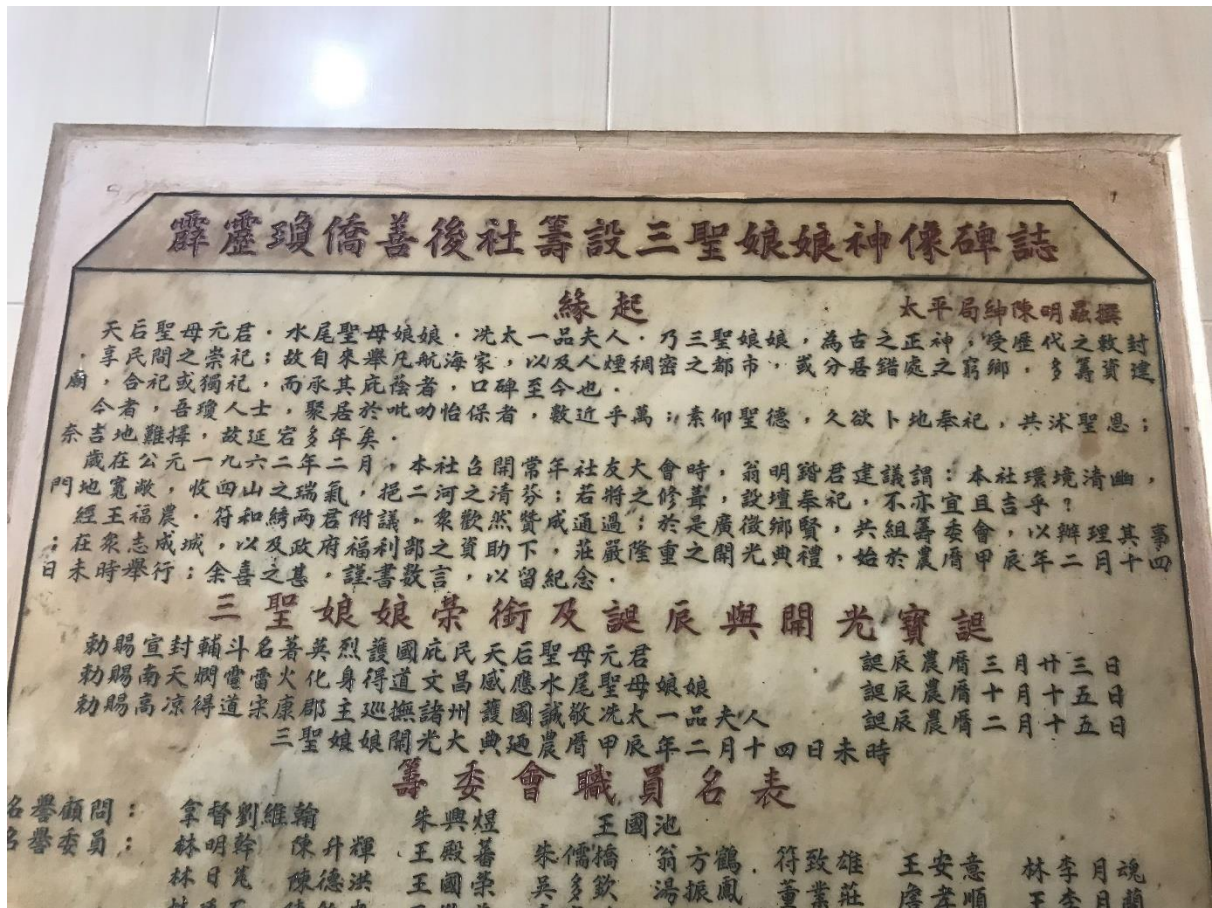 霹靂瓊僑善後社籌設三聖娘娘神像碑誌
緣起
太平局紳陳明聶撰
天后聖母元君．水尾聖母娘娘．冼太一品夫人．乃三聖娘娘，為古之正神，受歷代之敕封
．享民間之崇祀；故自來舉凡航海家，以及人煙稠密之都市，或分居錯處之窮鄉，多籌資建
廟，合祀或獨祀，而承其庇蔭者，口碑至今也．
今者，吾瓊人士，聚居於吡叻怡保者，數近乎萬；素仰聖德，久欲卜地奉祀，共沭聖恩；
奈吉地難擇，故延宕多年矣．
歲在公元一九六二年二月，本社召開常年社友大會時，翁明鍇君建議謂：本社環境清幽，
門地寬敞，收四山之瑞氣，挹二河之清芬；若將之修葺，設壇奉祀，不亦宜且吉乎？
經王福農．符和綉兩君附議．衆歡然贊成通過；於是廣徵鄉賢，共組籌委會，以辦理其事
；在衆志成城，以及政府福利部之資助下，莊嚴隆重之開光典禮，始於農厝甲辰年二月十四
日未時舉行；余喜之甚，謹書數言，以留紀念．
三聖娘娘荣銜及誕辰與開光寶誕
勅賜宣封輔斗名著英烈護國庇民天后聖母元君 誕辰農厝三月廿三日
勅賜南天燗電雷火化身得道文昌感應水尾聖母娘娘 誕辰農厝十月十五日
勅賜高涼得道宋康郡主巡撫諸州護國誠敬冼太一品夫人 誕辰農厝二月十五日
三聖娘娘開光大典廼農厝甲辰年二月十四日未時
籌委會職員名表
名譽顧問： 拿督劉維翰 朱興煜 王國池
名譽委員： 林明幹 陳升輝 王殿蕃 朱儒橋 翁方鶴 符致雄 王安意 林李月魂
林日 陳德洪 王國荣 吳多欽 湯振鳳 董業莊 詹孝順 王李月蘭